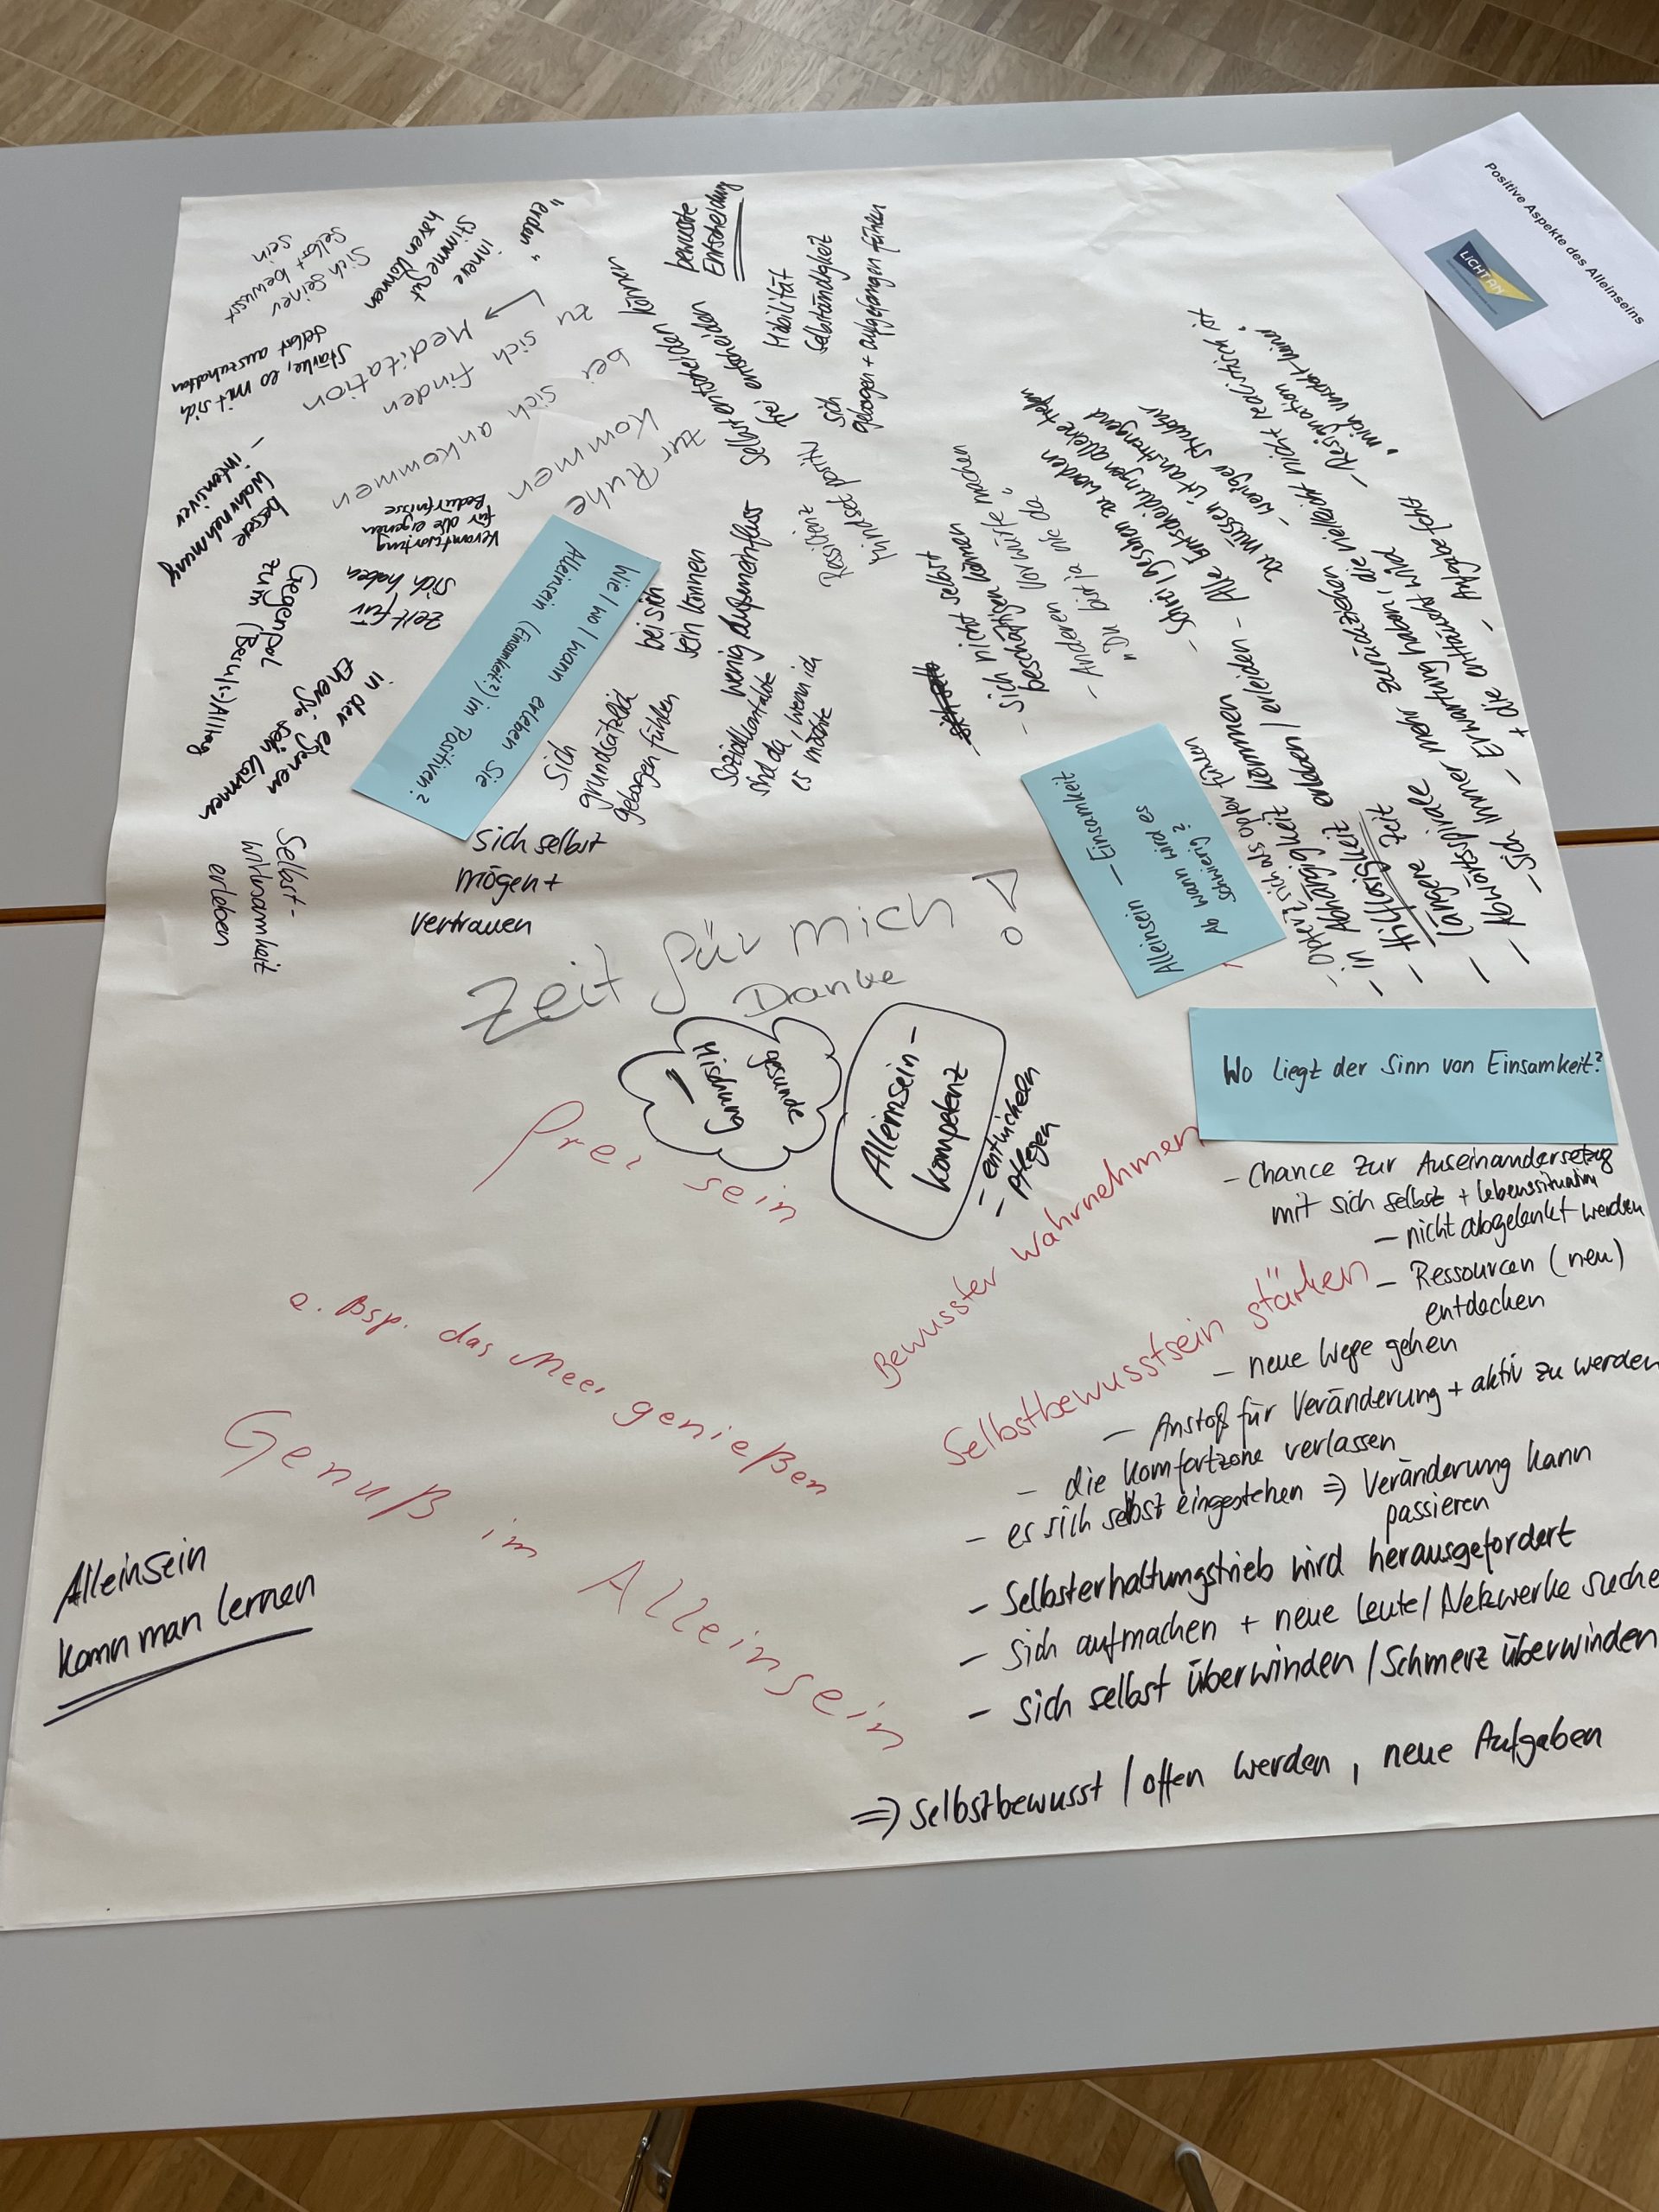 Positive Aspekte des Alleinseins
LICHT AN
Wie / wo / wann erleben Sie
Alleinsein (Einsamkeit?) im Positiven?
"erden"
innere
Stimme gut
hören können
Sich seiner
selbst bewusst
sein
Stärke, es mit sich
selbst auszuhalten
Meditation
zu sich finden
bei sich ankommen
zur Ruhe
kommen
bessere
Wahrnehmung
- intensiver
Verantwortung
für die eigenen
Bedürfnisse
Zeit für
sich haben
Gegenpol
zum (Beruf(s-)Alltag
in der eigenen
Energie sein können
Selbst-
wirksamkeit
erleben
bewusste
Entscheidung
selbst entscheiden können
frei entscheiden
Mobilität
Selbständigkeit
sich
geborgen + aufgefangen fühlen
Resilienz
Mindset positiv
bei sich
sein können
wenig Außeneinfluss
Sozialkontakte
sind da, wenn ich
es möchte
sich
grundsätzlich
geborgen fühlen
sich selbst
mögen +
vertrauen
Zeit für mich!
Danke
gesunde
Mischung
Alleinsein-
kompetenz
- entwickeln
- pflegen
frei sein
z. Bsp. das Meer genießen
Genuß im Alleinsein
Alleinsein
kann man lernen
Bewusster wahrnehmen
Selbstbewusstsein stärken
Alleinsein – Einsamkeit
Ab wann wird es
schwierig?
- sich nicht selbst
beschäftigen können
- Anderen Vorwürfe machen
"Du bist ja nie da"
- Schrei gesehen zu werden
- Alle Entscheidungen alleine treffen
zu müssen ist anstrengend
- weniger Struktur
- Opfer, sich als Opfer fühlen
- in Abhängigkeit kommen
- Hilflosigkeit erleben / erleiden
- längere Zeit
- Abwärtsspirale
- sich immer mehr zurückziehen
- Erwartung haben, die vielleicht nicht realistisch ist
+ die enttäuscht wird
- Resignation
"mich versteht keiner"
Wo liegt der Sinn von Einsamkeit?
- Chance zur Auseinandersetzung
mit sich selbst + Lebenssituation
- nicht abgelenkt werden
- Ressourcen (neu)
entdecken
- neue Wege gehen
- Anstoß für Veränderung + aktiv zu werden
- die Komfortzone verlassen
- es sich selbst eingestehen ⇒ Veränderung kann
passieren
- Selbsterhaltungstrieb wird herausgefordert
- sich aufmachen + neue Leute / Netzwerke suche
- sich selbst überwinden / Schmerz überwinden
⇒ selbstbewusst / offen werden, neue Aufgaben